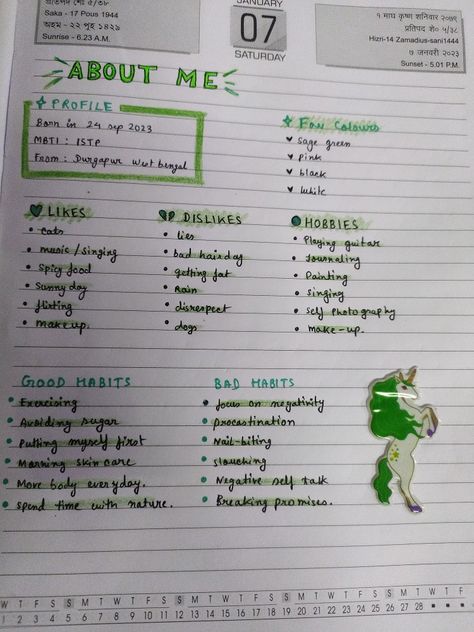 Saka - 17 Pous 1944
Sunrise - 6.23 A.M.
JANUARY
07
SATURDAY
Hizri-14 Zamadius-sani1444
Sunset - 5.01 P.M.
ABOUT ME
PROFILE
Born in 24 sep 2023
MBTI : ISTP
From : Durgapur West bengal
Fav Colours
sage green
pink
black
white
LIKES
cats
music/singing
Spicy food
Sunny day
flirting
make up.
DISLIKES
lies
bad hairday
getting fat
Rain
disrespect
dogs
HOBBIES
Playing guitar
Journaling
Painting
Singing
Self Photography
Make-up.
GOOD HABITS
Exercising
Avoiding sugar
Putting myself first
Morning skin care
Move body everyday.
Spend time with nature.
BAD HABITS
focus on negativity
procastination
Nail-biting
slouching
Negative self talk
Breaking promises.
W T F S S M T W T F S S M T W T F S S M T W T F S S M T W T F
1 2 3 4 5 6 7 8 9 10 11 12 13 14 15 16 17 18 19 20 21 22 23 24 25 26 27 28